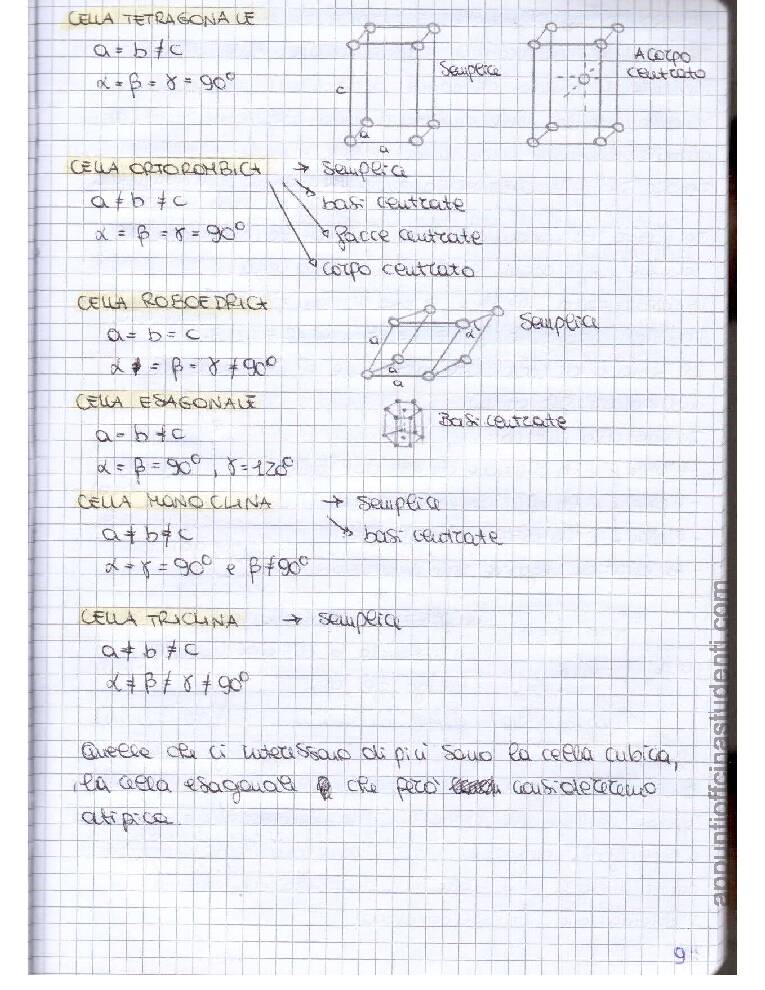 CELLA TETRAGONALE
a = b ≠ c
α = β = γ = 90°
c
a
a
Semplice
A corpo
centrato
CELLA ORTOROMBICA → Semplice
a ≠ b ≠ c
basi centrate
α = β = γ = 90°
facce centrate
corpo centrato
CELLA ROBOEDRICA
a = b = c
α = β = γ ≠ 90°
a
a
a
α
Semplice
CELLA ESAGONALE
a = b ≠ c
α = β = 90°, γ = 120°
Basi centrate
CELLA MONOCLINA → Semplice
a ≠ b ≠ c
basi centrate
α = γ = 90° e β ≠ 90°
CELLA TRICLINA → Semplice
a ≠ b ≠ c
α ≠ β ≠ γ ≠ 90°
Quelle che ci interessano di più sono la cella cubica,
la cella esagonale che però considereremo
atipica.
appuntiofficinastudenti.com
9